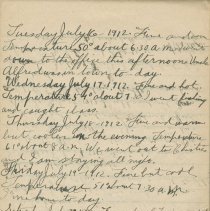 Tuesday July 16 1912. Fine and warm
Temperature 50° about 6.30 a.m.
down to the office this afternoon Uncle
Alfred was in town to-day.
Wednesday July 17. 1912. Fine and hot.
Temperature 54° about 7. I went fishing
and caught
Thursday July 18. 1912. Fine and warm
but cooler in the evening. Temperature
61° about 8 A.M. We went out to
and I am staying all nyte.
Friday July 19. 1912. Fine but cool
Temperature 51° about 7.30 A.M.
me home to day